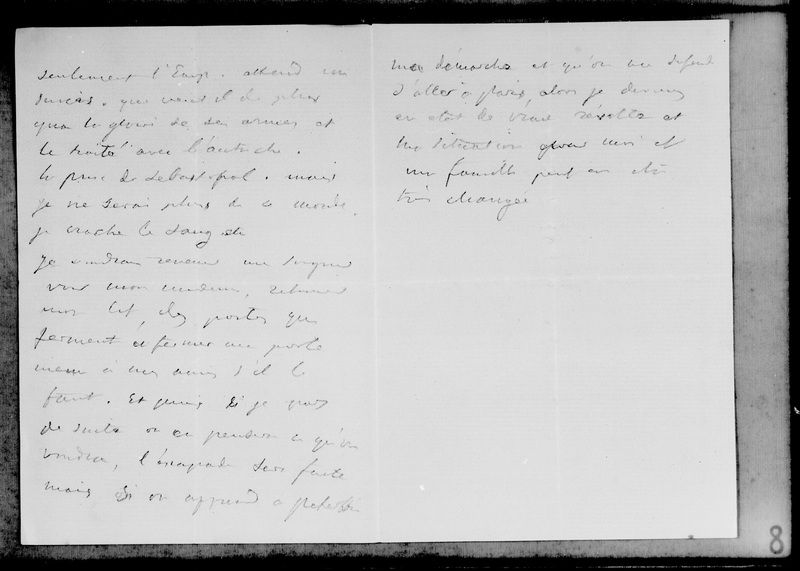 seulement l'Emp. attend un
succès. que veut il de plus
que la gloire de ses armes et
le traité avec l'autriche.
la prise de Sebastopol. mais
je ne serai plus de ce monde.
je crache le sang
je voudrais revenir me soigner
voir mon médecin, retrouver
mon lit, des portes qui
ferment et fermer ma porte
même à mes amis s'il le
faut. Et puis si je pars
de suite on en pensera ce qu'on
voudra, l'escapade sera faite
mais si on apprend à
ma démarche et qu'on me défend
d'aller à paris, alors je deviens
en état de vraie révolte et
ma situation pour moi et
ma famille peut en être
très changée
8